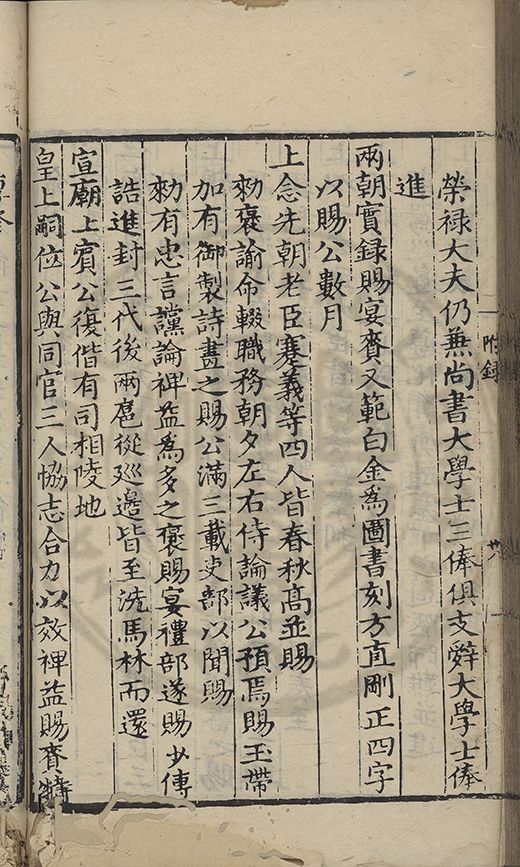 附録
榮禄大夫仍兼尚書大學士三俸俱支辤大學士俸
進
兩朝實録賜宴賚又範白金為圖書刻方直剛正四字
以賜公數月
上念先朝老臣蹇義等四人皆春秋高並賜
勑褒諭命輟職務朝夕左右侍論議公預焉賜玉帶
加有御製詩畫之賜公滿三載吏部以聞賜
勑有忠言讜論裨益為多之褒賜宴禮部遂賜少傅
誥進封三代後兩扈從廵邉皆至洗馬林而還
宣廟上賓公復偕有司相陵地
皇上嗣位公與同官三人恊志合力以效裨益賜賚